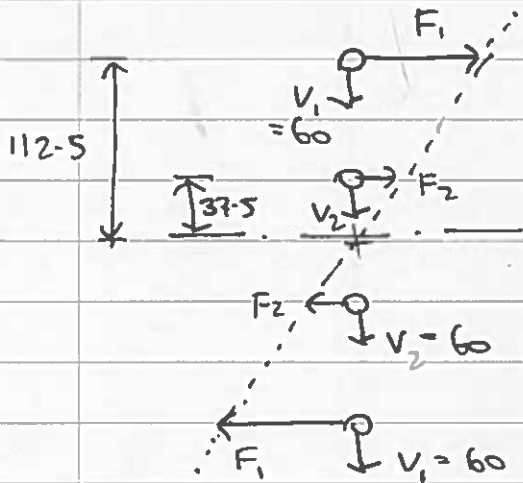 F₁
V₁
= 60
112.5
F₂
37.5
V₂
F₂
V₂ = 60
F₁
V₁ = 60